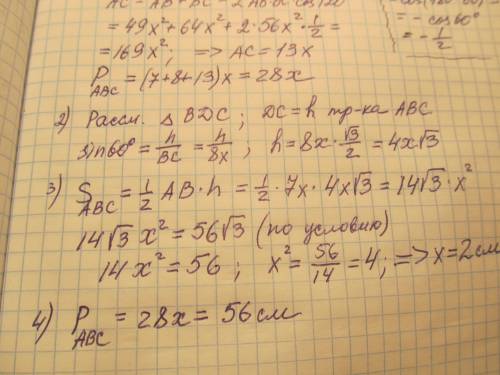 AC² = AB² + BC² − 2AB·BC·cos120°
= 49x² + 64x² + 2·56x²·½ =
= 169x²; => AC = 13x
P_ABC = (7+8+13)x = 28x
= −cos60°
= −½
2) Рассм. △ BDC; DC = h тр-ка ABC
sin60° = h/BC = h/8x; h = 8x·√3/2 = 4x√3
3) S_ABC = ½ AB·h = ½·7x·4x√3 = 14√3·x²
14√3 x² = 56√3 (по условию)
14x² = 56; x² = 56/14 = 4; => x = 2см
4) P_ABC = 28x = 56см